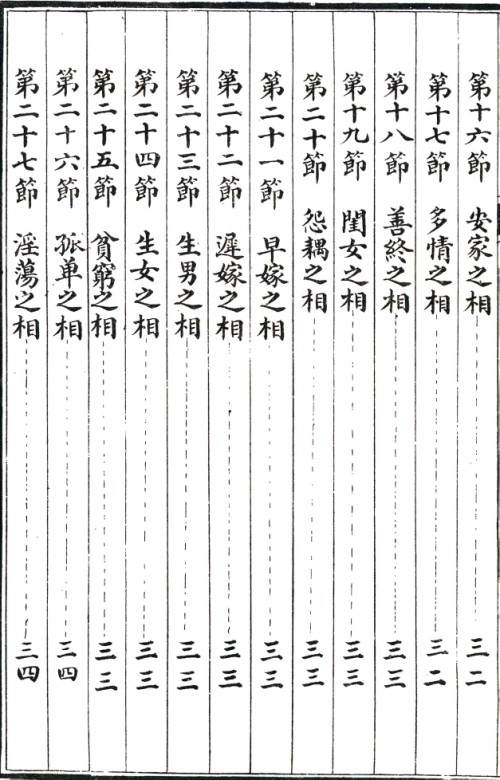 第十六節 安家之相 三二
第十七節 多情之相 三二
第十八節 善終之相 三三
第十九節 閨女之相 三三
第二十節 怨耦之相 三三
第二十一節 早嫁之相 三三
第二十二節 遲嫁之相 三三
第二十三節 生男之相 三三
第二十四節 生女之相 三三
第二十五節 貧窮之相 三三
第二十六節 孤单之相 三四
第二十七節 淫蕩之相 三四